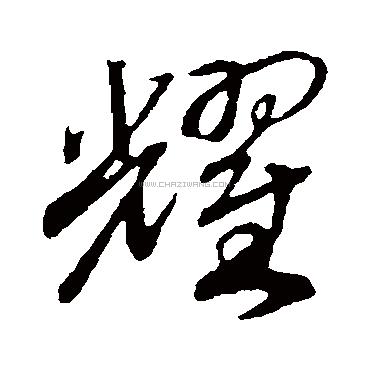 耀
WWW.CHAZIWANG.COM